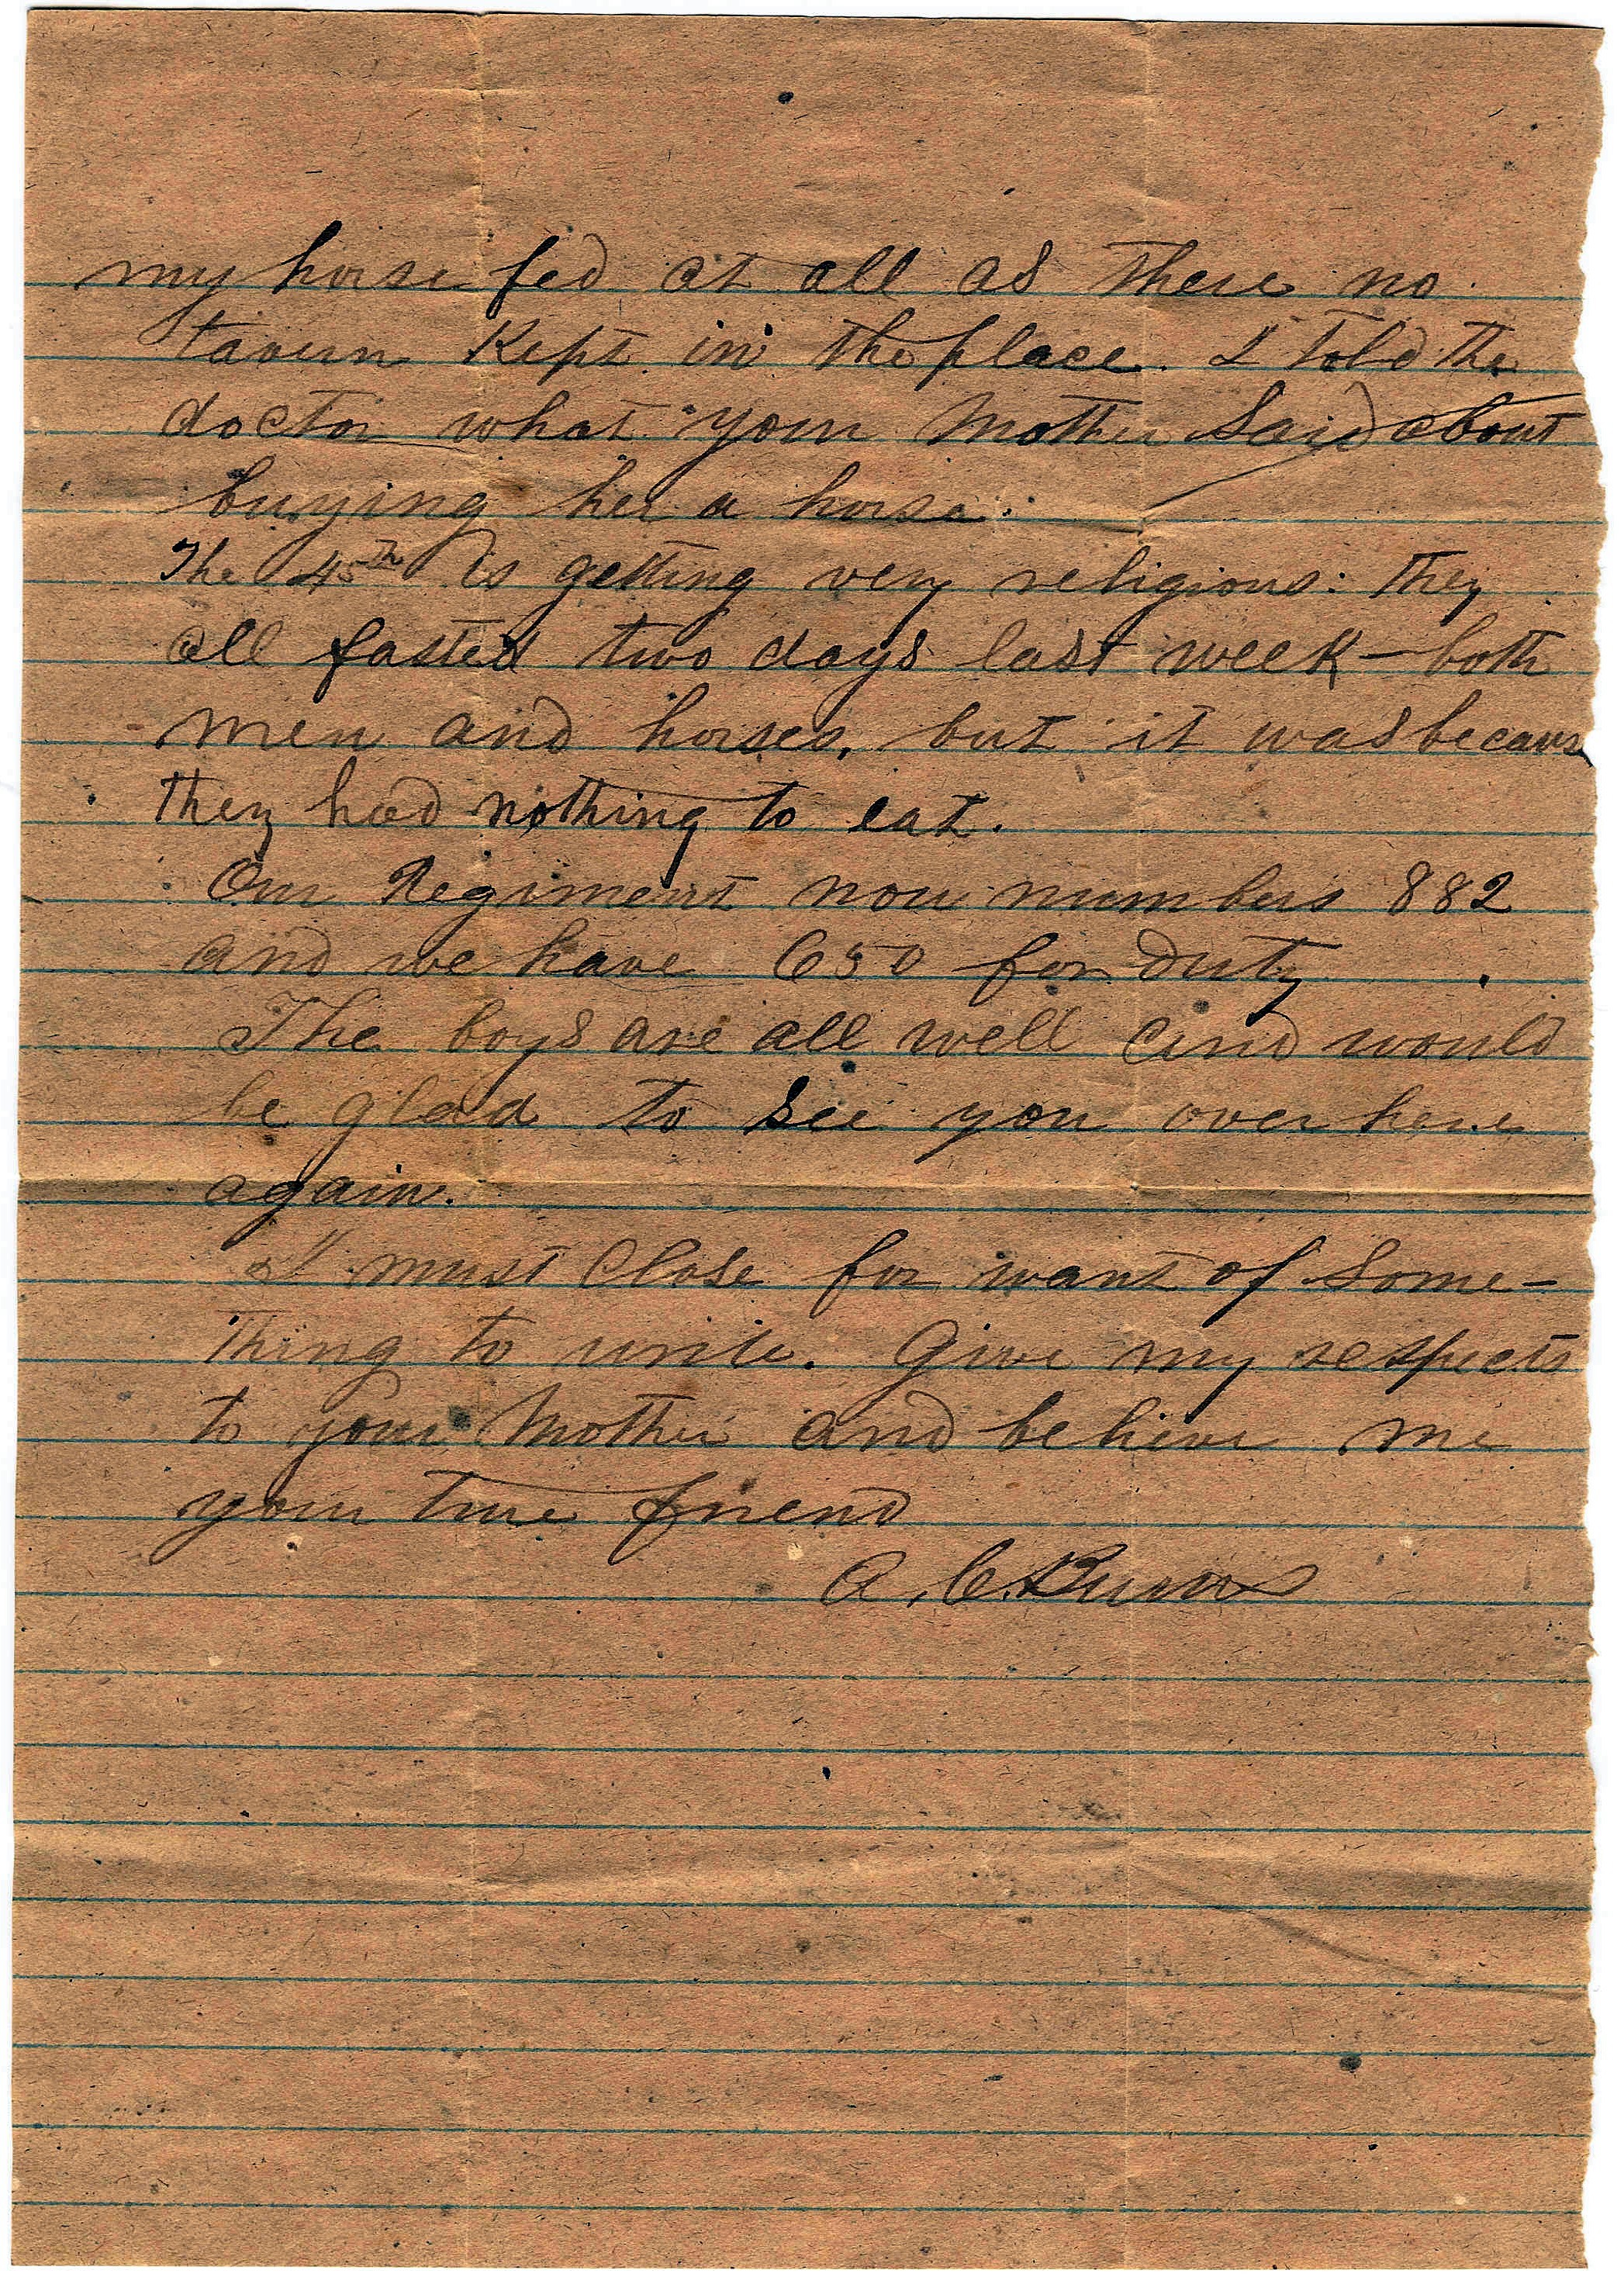 my horse fed at all as there no
tavern Kept in the place. I told the
doctor what your Mother said about
buying her a horse.
The 45th is getting very religious: they
all fasted two days last week — both
men and horses, but it was becaus
they had nothing to eat.
Our Regiment now numbers 882
and we have 650 for duty
The boys are all well and would
be glad to see you over here
again.
I must Close for want of some-
thing to write. Give my respects
to your Mother and believe me
your true friend
A. C. Burns